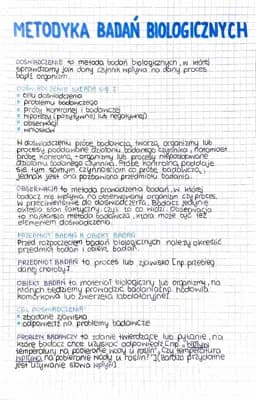 METODYKA BADAŃ BIOLOGICZNYCH
DOŚWIADCZENIE to metoda badań biologicznych, w której
sprawdzamy jak dany czynnik wpływa na dany proces
bądź organizm.
DOŚWIADCZENIE SKŁADA SIĘ Z:
celu doświadczenia
problemu badawczego
próby kontrolnej i badawczej
hipotezy (pozytywnej lub negatywnej)
obserwacji
wniosków
W doświadczeniu próbę badawczą tworzą organizmy lub
procesy poddawane działaniu badanego czynnika, natomiast
próbę kontrolną - organizmy lub procesy niepoddawane
działaniu badanego czynnika. Próba kontrolna poddaje
się tym samym czynnościom co próba badawcza,
jednak jest ona pozbawiona przedmiotu badania.
OBSERWACJA to metoda prowadzenia badań, w której
badacz nie wpływa na obserwowany organizm czy proces,
w przeciwieństwie do doświadczenia. Badacz jedynie
określa stan faktyczny, czyli to co widzi. Obserwacja
to najstarsza metoda badawcza, która może być też
elementem doświadczenia.
PRZEDMIOT BADAŃ A OBIEKT BADAŃ
Przed rozpoczęciem badań biologicznych należy określić
przedmiot badań i obiekt badań.
PRZEDMIOT BADAŃ to proces lub zjawisko np. przebieg
danej choroby.
OBIEKT BADAŃ to materiał biologiczny lub organizmy, na
których będziemy prowadzić badania np. hodowla
komórkowa lub zwierzęta laboratoryjne.
CEL DOŚWIADCZENIA:
zbadanie zjawiska
odpowiedź na problemy badawcze
PROBLEM BADAWCZY to zdanie twierdzące lub pytanie, na
które badacz chce uzyskać odpowiedź np. "Wpływ
temperatury na pobieranie wody u roślin", "Czy temperatura
wpływa na pobieranie wody u roślin?" (Bardzo przydatne
jest używanie słowa wpływ)